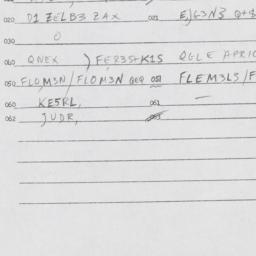 020 D1 ZELB3 ZAX 021 E,)G3N3 Q+
030 O
040 QNEX ) FER3S+K1S QGLE APRIC
050 FLOM3N / FLOM3N GEQ 051 FLEM3LS/F
060 KE5RL, 061 —
062 JUDR,